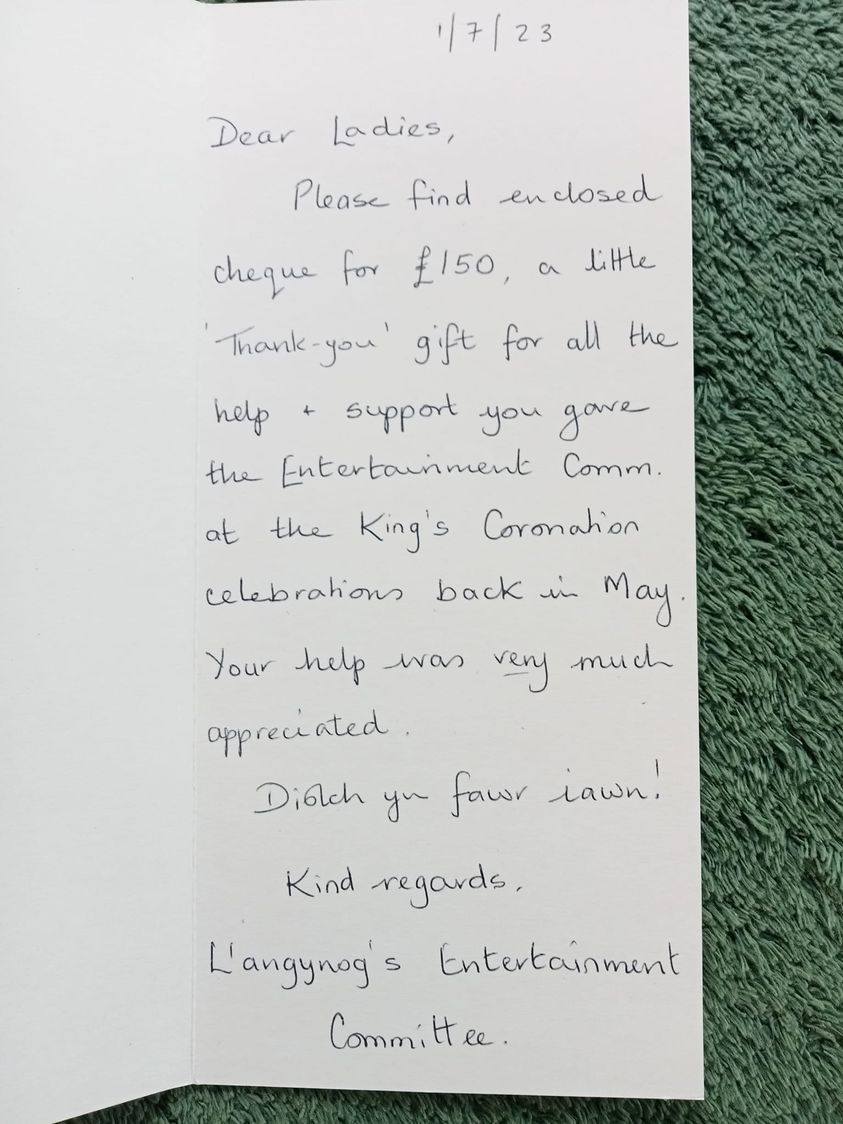 1/7/23
Dear Ladies,
Please find enclosed
cheque for £150, a little
'Thank-you' gift for all the
help + support you gave
the Entertainment Comm.
at the King's Coronation
celebrations back in May.
Your help was very much
appreciated.
Diolch yn fawr iawn!
Kind regards,
Llangynog's Entertainment
Committee.